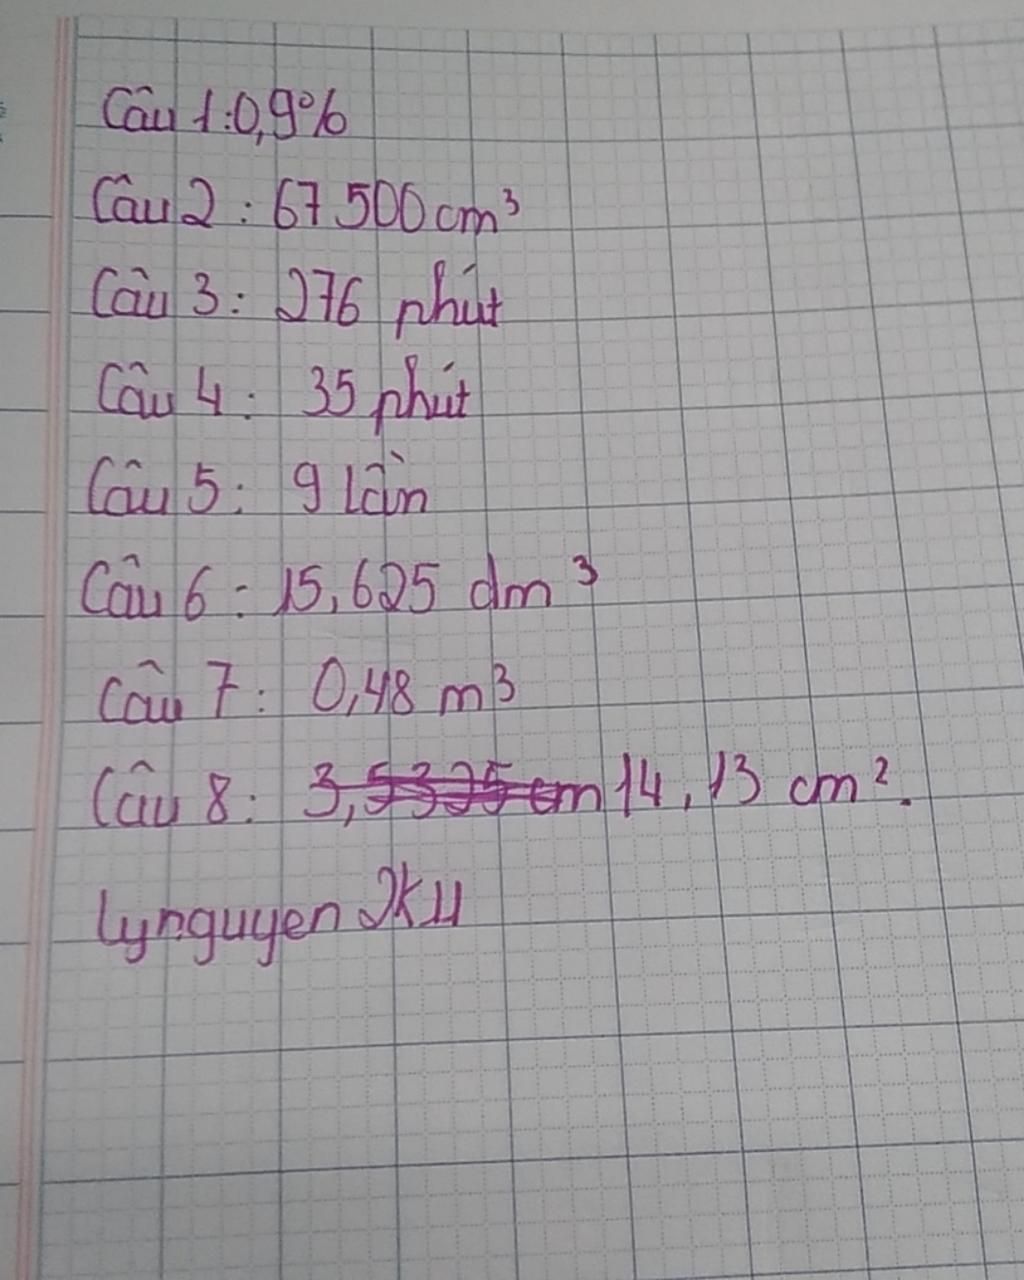 Câu 1: 0,9%
Câu 2: 67 500 cm³
Câu 3: 276 phút
Câu 4: 35 phút
Câu 5: 9 lần
Câu 6: 15,625 dm³
Câu 7: 0,48 m³
Câu 8: 3,5325 cm 14,13 cm².
lynguyen2k11